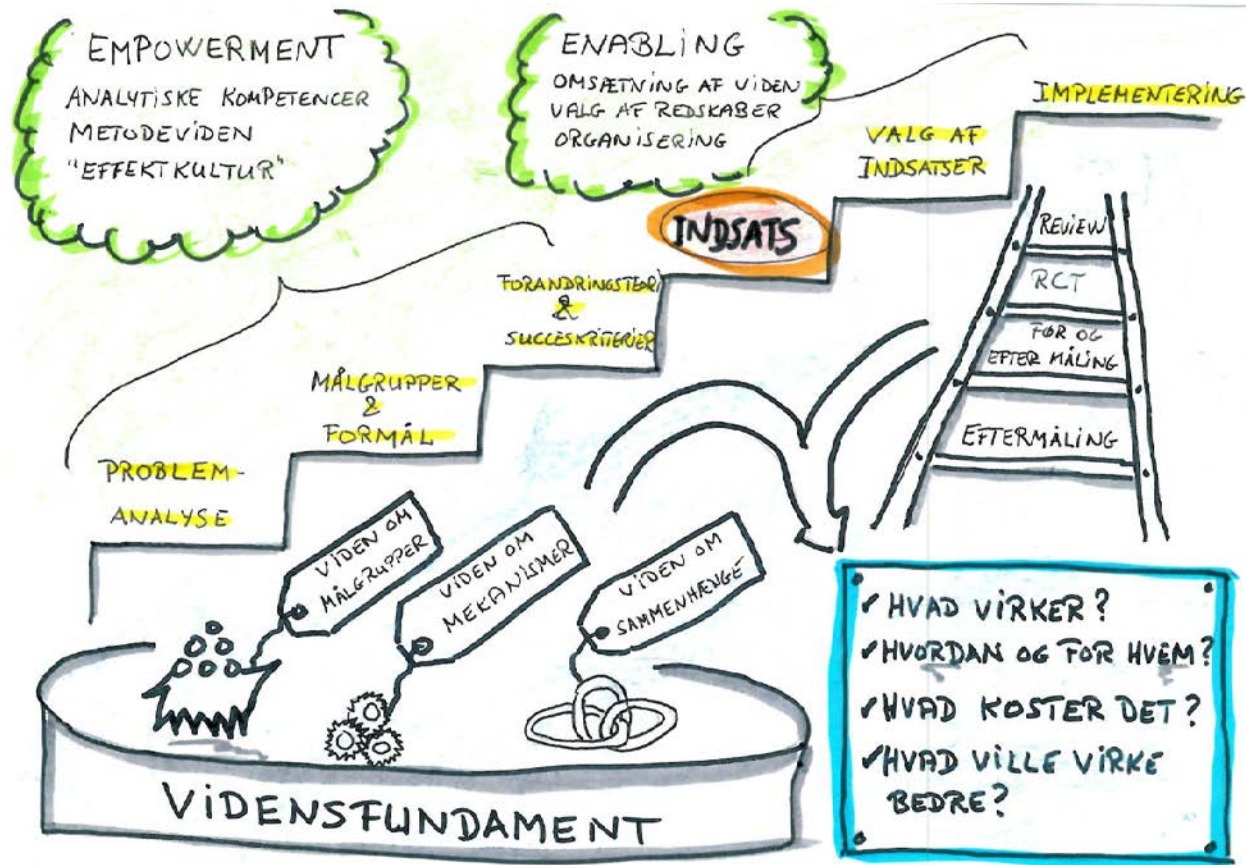 EMPOWERMENT
ANALYTISKE KOMPETENCER
METODEVIDEN
"EFFEKTKULTUR"
ENABLING
OMSÆTNING AF VIDEN
VALG AF REDSKABER
ORGANISERING
IMPLEMENTERING
VALG AF
INDSATSER
INDSATS
FORANDRINGSTEORI
&
SUCCESKRITERIER
MÅLGRUPPER
&
FORMÅL
PROBLEM-
ANALYSE
REVIEW
RCT
FØR OG
EFTER MÅLING
EFTERMÅLING
VIDEN OM
MÅLGRUPPER
VIDEN OM
MEKANISMER
VIDEN OM
SAMMENHÆNGE
VIDENSFUNDAMENT
✓ HVAD VIRKER?
✓ HVORDAN OG FOR HVEM?
✓ HVAD KOSTER DET?
✓ HVAD VILLE VIRKE
BEDRE?